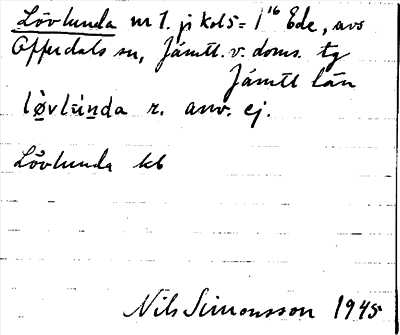 Lövlunda nr 1. på kol 5 = 1¹⁶ Ede, avs
Offerdals sn, Jämtl. v. doms. tg
Jämtl län
lø̀vlùnda r. anv. ej.
Lövlunda kb
Nils Simonsson 1945